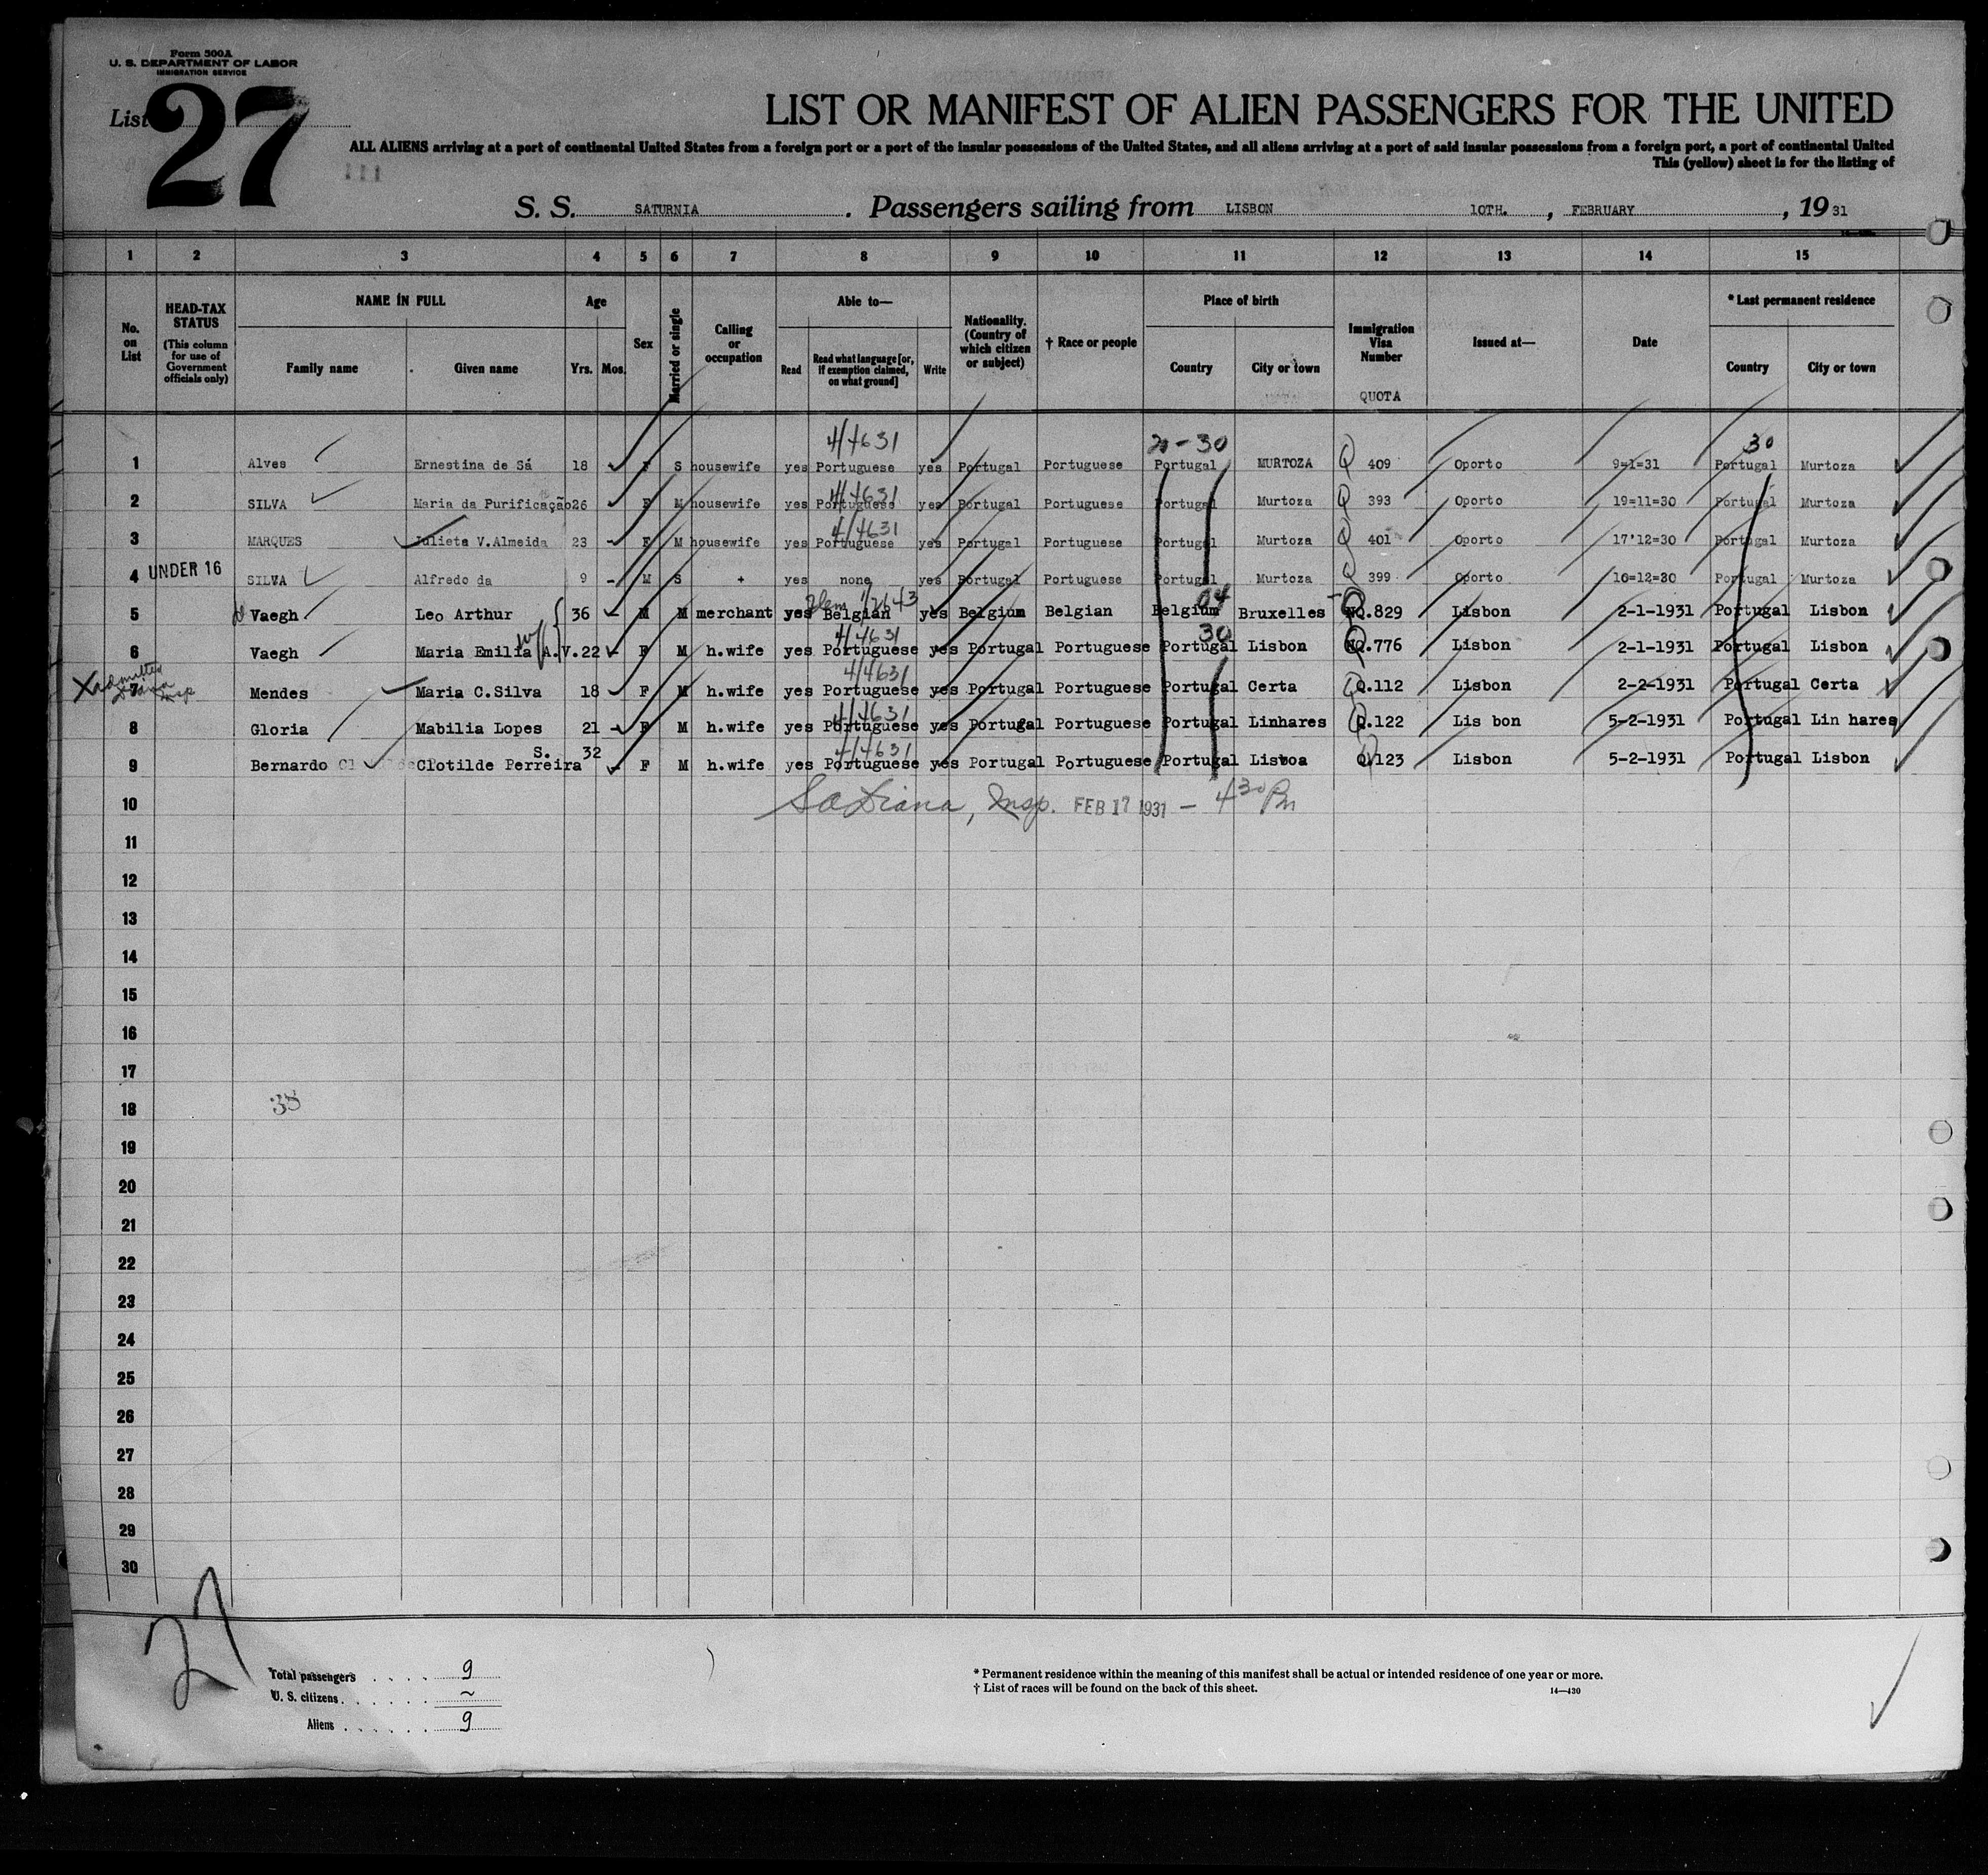 Form 500A
U. S. DEPARTMENT OF LABOR
IMMIGRATION SERVICE
List 27
LIST OR MANIFEST OF ALIEN PASSENGERS FOR THE UNITED
ALL ALIENS arriving at a port of continental United States from a foreign port or a port of the insular possessions of the United States, and all aliens arriving at a port of said insular possessions from a foreign port, a port of continental United
This (yellow) sheet is for the listing of
S. S. SATURNIA. Passengers sailing from LISBON 10TH., FEBRUARY, 1931
1 2 3 4 5 6 7 8 9 10 11 12 13 14 15
No. on List
HEAD-TAX STATUS (This column for use of Government officials only)
NAME IN FULL Family name Given name
Age Yrs. Mos.
Sex
Married or single
Calling or occupation
Able to— Read Read what language [or, if exemption claimed, on what ground] Write
Nationality. (Country of which citizen or subject)
† Race or people
Place of birth Country City or town
Immigration Visa Number QUOTA
Issued at—
Date
* Last permanent residence Country City or town
4/4631 30 30
1 Alves Ernestina de Sá 18 F S housewife yes Portuguese yes Portugal Portuguese Portugal MURTOZA Q 409 Oporto 9=1=31 Portugal Murtoza
4/4631
2 SILVA Maria da Purificação 26 F M housewife yes Portuguese yes Portugal Portuguese Portugal Murtoza Q 393 Oporto 19=11=30 Portugal Murtoza
4/4631
3 MARQUES Julieta V.Almeida 23 - F M housewife yes Portuguese yes Portugal Portuguese Portugal Murtoza Q 401 Oporto 17'12=30 Portugal Murtoza
4 UNDER 16 SILVA Alfredo da 9 - M S + yes none yes Portugal Portuguese Portugal Murtoza Q 399 Oporto 16=12=30 Portugal Murtoza
04
5 Vaegh Leo Arthur 36 - M M merchant yes Belgian yes Belgium Belgian Belgium Bruxelles NQ.829 Lisbon 2-1-1931 Portugal Lisbon
4/4631 30
6 Vaegh Maria Emilia A.V. 22 - F M h.wife yes Portuguese yes Portugal Portuguese Portugal Lisbon NQ.776 Lisbon 2-1-1931 Portugal Lisbon
X admitted
4/4631
7 Mendes Maria C.Silva 18 F M h.wife yes Portuguese yes Portugal Portuguese Portugal Certa Q.112 Lisbon 2-2-1931 Portugal Certa
4/4631
8 Gloria Mabilia Lopes 21 - F M h.wife yes Portuguese yes Portugal Portuguese Portugal Linhares Q.122 Lis bon 5-2-1931 Portugal Lin hares
4/4631
9 Bernardo Clotilde S. Perreira 32 - F M h.wife yes Portuguese yes Portugal Portuguese Portugal Lisboa Q.123 Lisbon 5-2-1931 Portugal Lisbon
10 Insp. FEB 17 1931 — 4 30 Pm
11
12
13
14
15
16
17
18 38
19
20
21
22
23
24
25
26
27
28
29
30
27
Total passengers . . . . 9
U. S. citizens . . . . . . ~
Aliens . . . . . . 9
* Permanent residence within the meaning of this manifest shall be actual or intended residence of one year or more.
† List of races will be found on the back of this sheet.
14—430